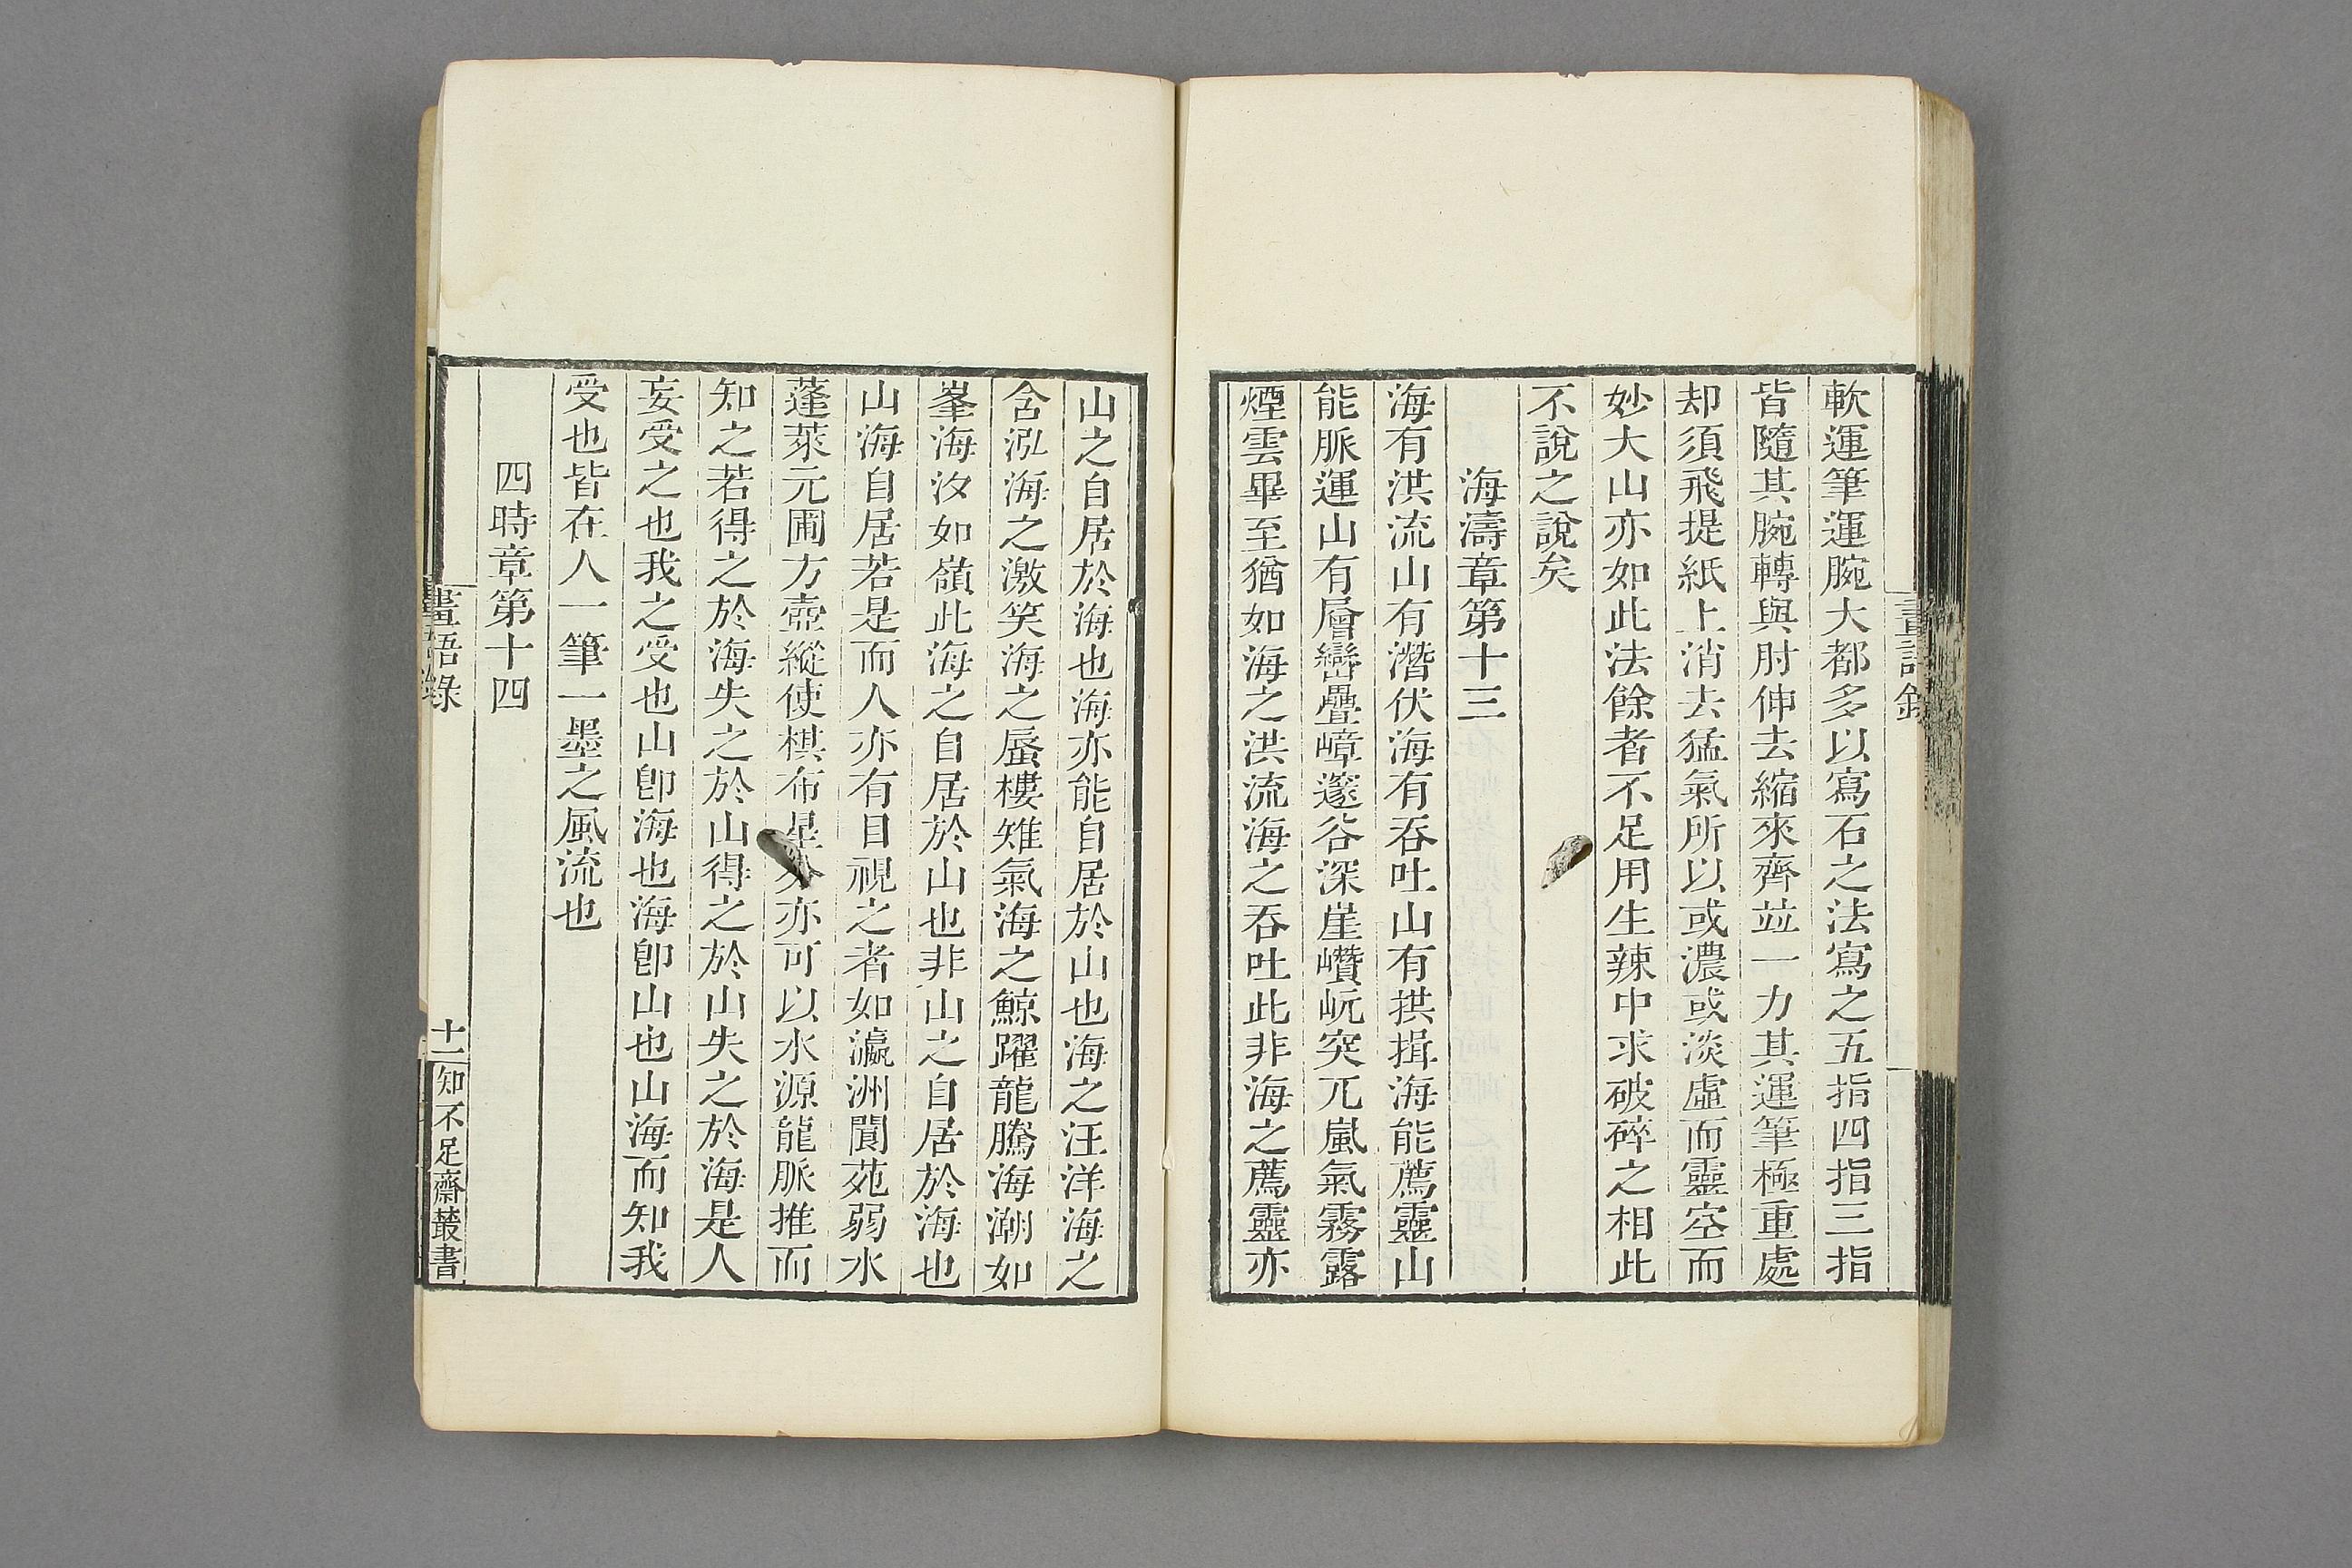 畫語錄
軟運筆運腕大都多以寫石之法寫之五指四指三指
皆隨其腕轉與肘伸去縮來齊並一力其運筆極重處
却須飛提紙上消去猛氣所以或濃或淡虛而靈空而
妙大山亦如此法餘者不足用生辣中求破碎之相此
不說之說矣
海濤章第十三
海有洪流山有潛伏海有吞吐山有拱揖海能薦靈山
能脈運山有層巒疊嶂邃谷深崖巑岏突兀嵐氣霧露
煙雲畢至猶如海之洪流海之吞吐此非海之薦靈亦
山之自居於海也海亦能自居於山也海之汪洋海之
含泓海之激笑海之蜃樓雉氣海之鯨躍龍騰海潮如
峯海汐如嶺此海之自居於山也非山之自居於海也
山海自居若是而人亦有目視之者如瀛洲閬苑弱水
蓬萊元圃方壺縱使棋布星分亦可以水源龍脈推而
知之若得之於海失之於山得之於山失之於海是人
妄受之也我之受也山卽海也海卽山也山海而知我
受也皆在人一筆一墨之風流也
四時章第十四
畫語錄
十一
知不足齋叢書